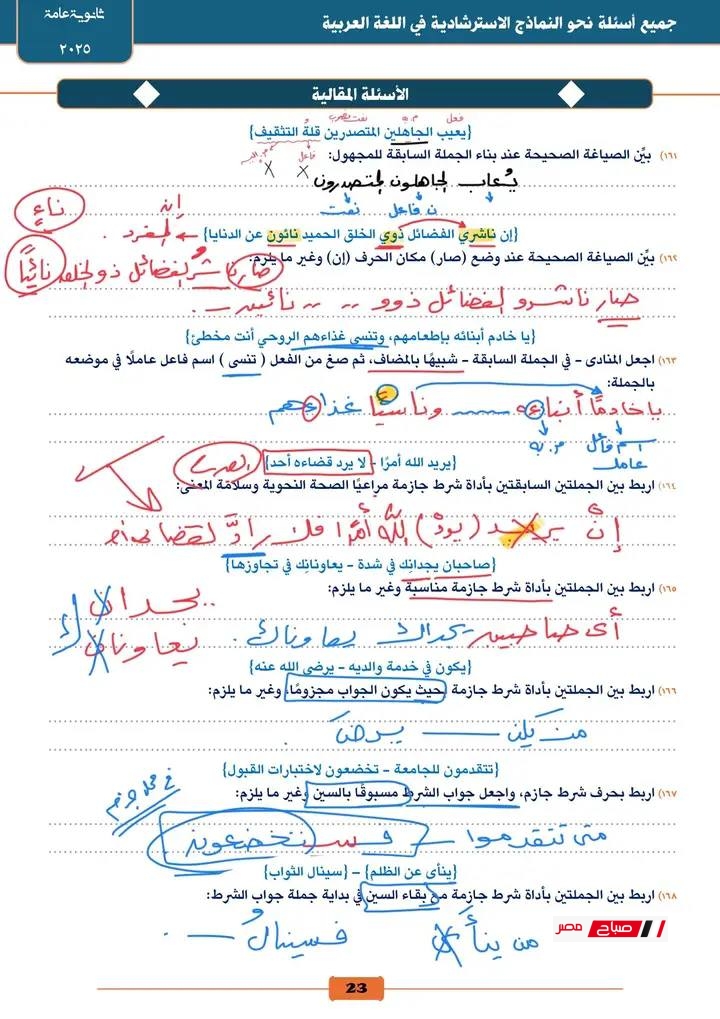 ثانوية عامة
٢٠٢٥
جميع أسئلة نحو النماذج الاسترشادية في اللغة العربية
الأسئلة المقالية
فعل م.به نعت
{يعيب الجاهلين المتصدرين قلة التثقيف}
فاعل
(١٦١ بيّن الصياغة الصحيحة عند بناء الجملة السابقة للمجهول:
يُعاب الجاهلون المتصدرون
ن فاعل نعت
إن
ناءٍ
المفرد
{إن ناشري الفضائل ذوي الخلق الحميد نائون عن الدنايا}
(١٦٢ بيّن الصياغة الصحيحة عند وضع (صار) مكان الحرف (إن) وغير ما يلزم:
صار ناشرُ الفضائل ذو الخلق نائيًا
صار ناشرو الفضائل ذوو .. .. نائين
{يا خادم أبنائه بإطعامهم، وتنسى غذاءهم الروحي أنت مخطئ}
(١٦٣ اجعل المنادى - في الجملة السابقة - شبيهًا بالمضاف، ثم صغ من الفعل (تنسى) اسم فاعل عاملًا في موضعه
بالجملة:
يا خادمًا أبناءه وناسيًا غذاءهم
اسم فاعل م.به
عامل
{يريد الله أمرًا - لا يرد قضاءه أحد}
(١٦٤ اربط بين الجملتين السابقتين بأداة شرط جازمة مراعيًا الصحة النحوية وسلامة المعنى:
إنْ يرد الله أمرًا فلا رادَّ لقضائه
{صاحبان يجدانِك في شدة - يعاونانِك في تجاوزها}
(١٦٥ اربط بين الجملتين بأداة شرط جازمة مناسبة وغير ما يلزم:
يجدان
أى صاحبين يجداك يعاوناك .
يعاونان
{يكون في خدمة والديه - يرضى الله عنه}
(١٦٦ اربط بين الجملتين بأداة شرط جازمة حيث يكون الجواب مجزومًا، وغير ما يلزم:
من يكن يرضَ
{تتقدمون للجامعة - تخضعون لاختبارات القبول}
(١٦٧ اربط بحرف شرط جازم، واجعل جواب الشرط مسبوقًا بالسين وغير ما يلزم:
في محل جزم
متى تتقدموا فستخضعون
{ينأى عن الظلم} - {سينال الثواب}
(١٦٨ اربط بين الجملتين بأداة شرط جازمة مع بقاء السين في بداية جملة جواب الشرط:
من ينأ فسينالُ
صباح مصر
23